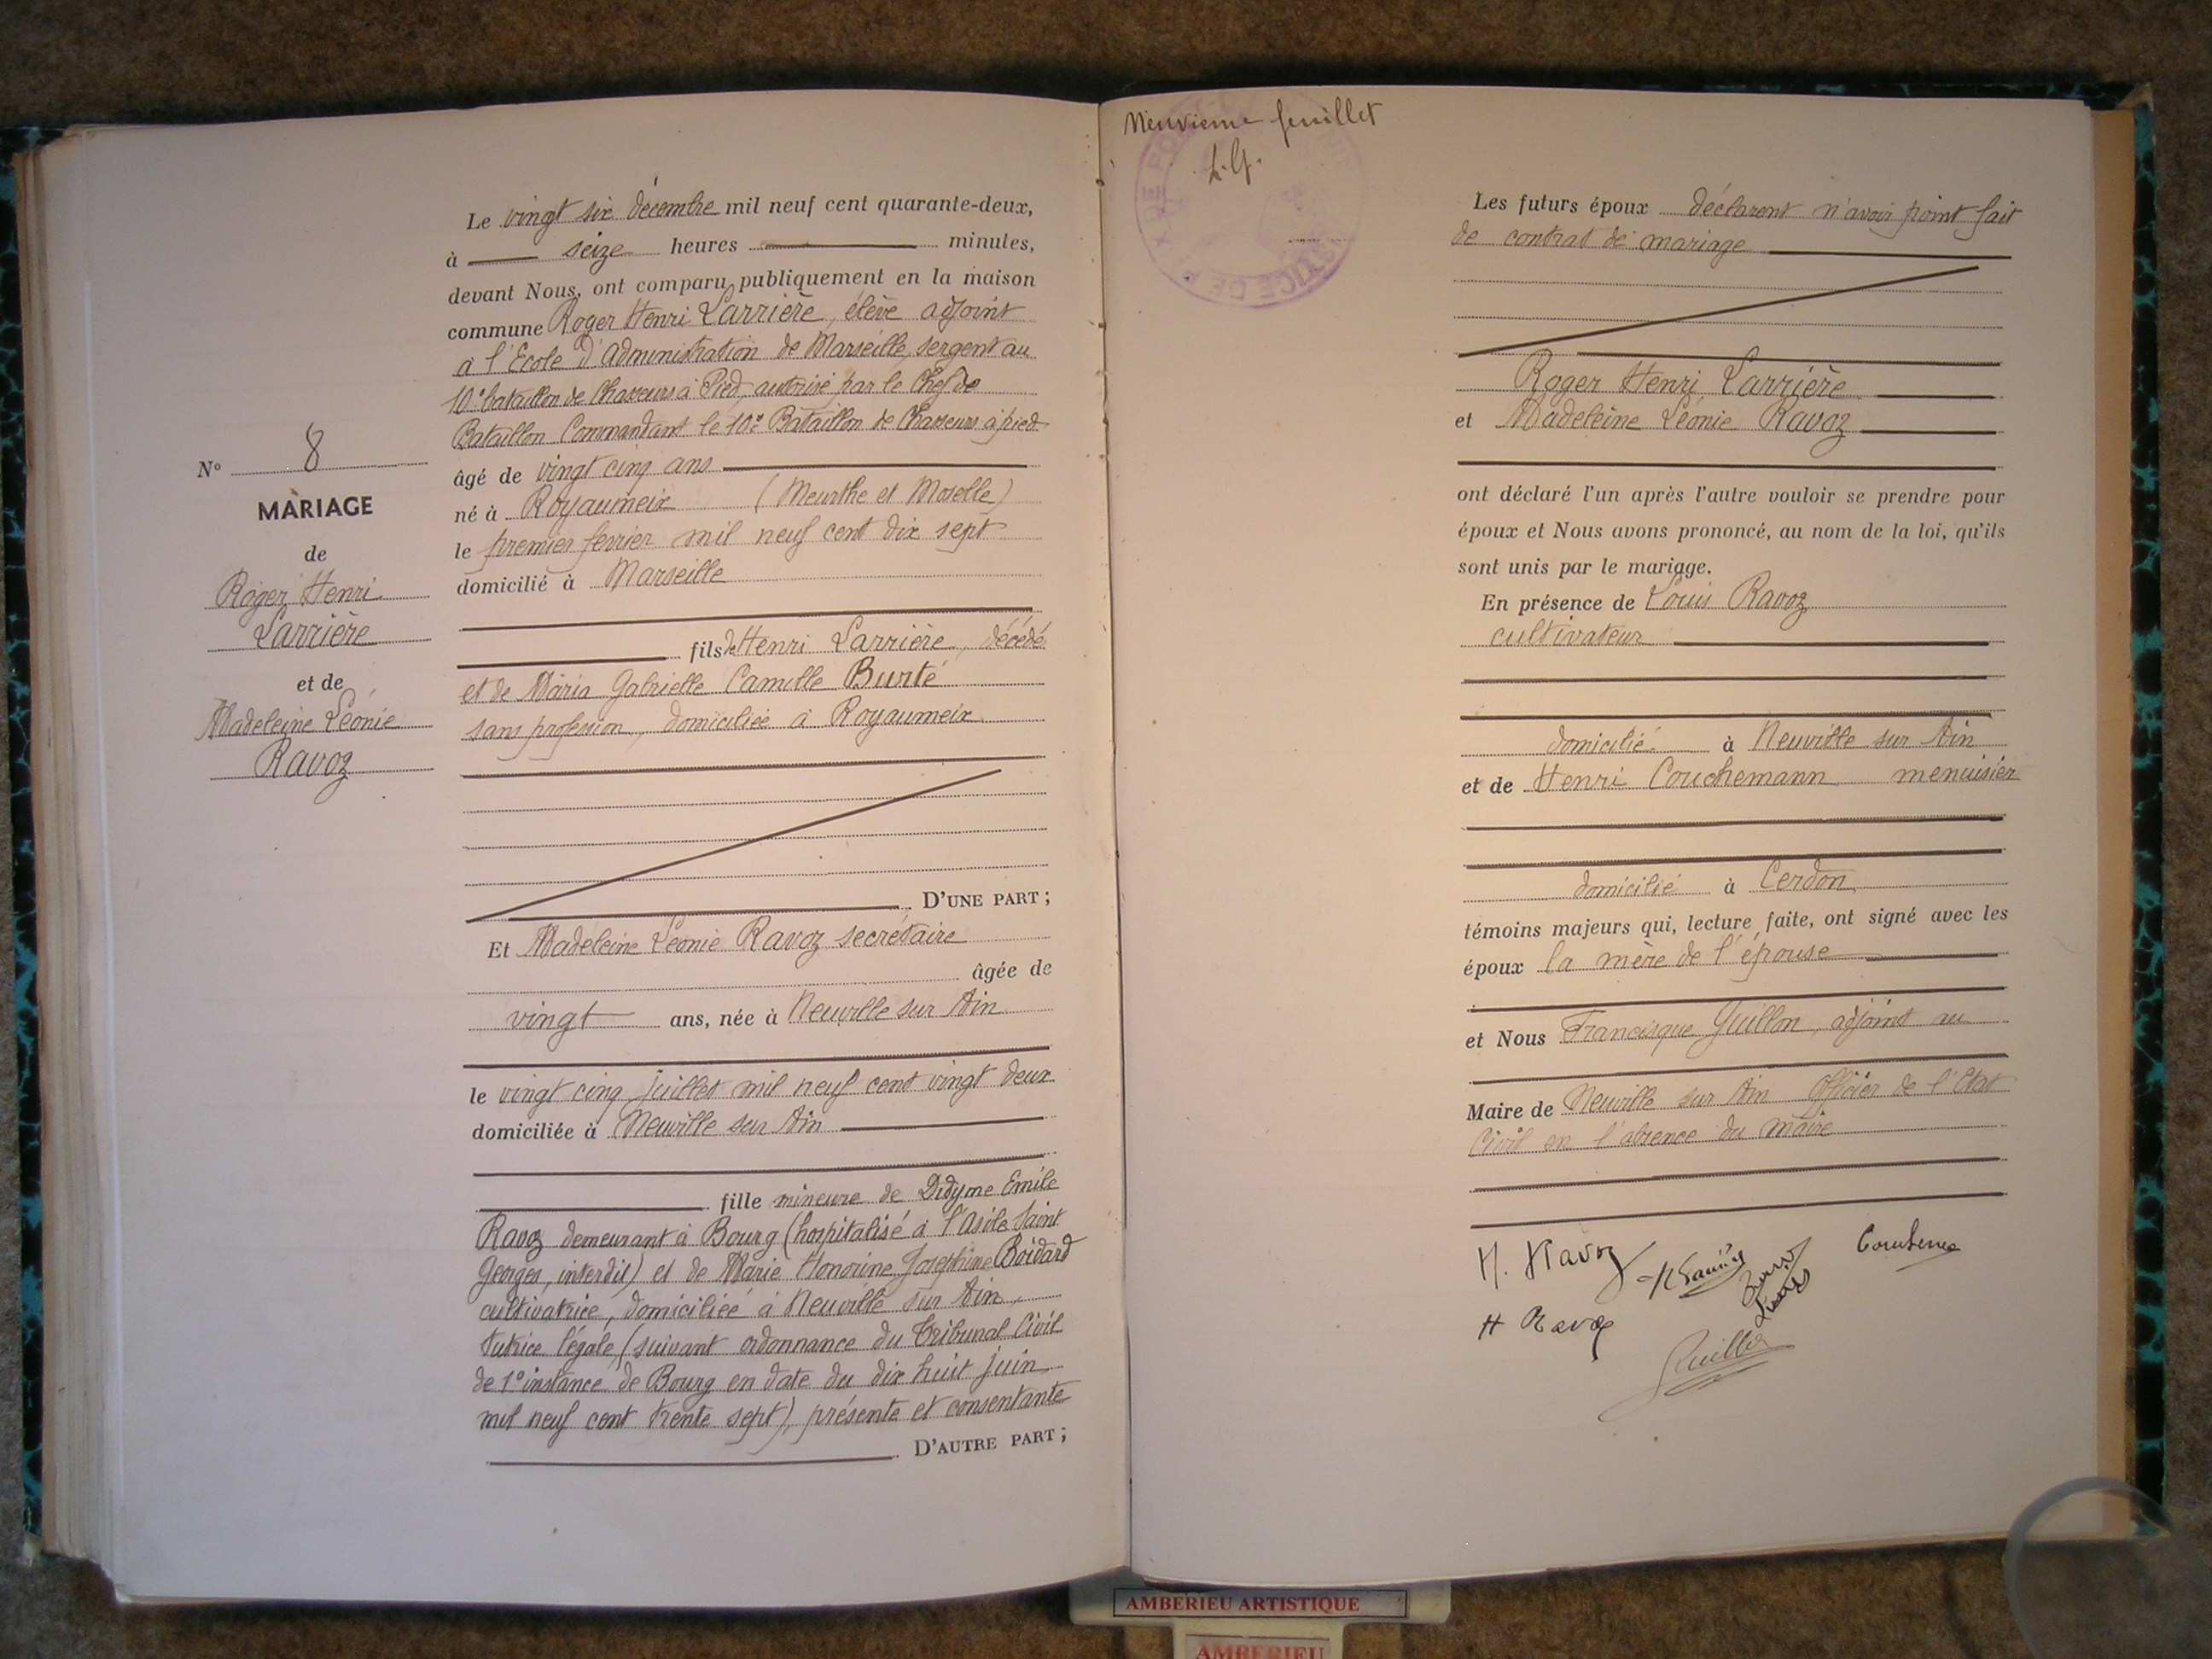 N° 8
MARIAGE
de
Roger Henri
Larrière
et de
Madeleine Léonie
Ravoz
Le vingt six décembre mil neuf cent quarante-deux,
à seize heures minutes,
devant Nous, ont comparu publiquement en la maison
commune Roger Henri Larrière, élève adjoint
à l'Ecole d'Administration de Marseille, sergent au
10e bataillon de Chasseurs à Pied, autorisé par le Chef de
Bataillon Commandant le 10e Bataillon de Chasseurs à pied
âgé de vingt cinq ans
né à Royaumeix (Meurthe et Moselle)
le premier février mil neuf cent dix sept
domicilié à Marseille
fils de Henri Larrière, décédé
et de Maria Gabrielle Camille Burté
sans profession, domiciliée à Royaumeix
D'UNE PART ;
Et Madeleine Léonie Ravoz secrétaire
âgée de
vingt ans, née à Neuville sur Ain
le vingt cinq juillet mil neuf cent vingt deux
domiciliée à Neuville sur Ain
fille mineure de Didyme Emile
Ravoz demeurant à Bourg (hospitalisé à l'Asile Saint
Georges, interdit) et de Marie Honorine Joséphine Boidard
cultivatrice, domiciliée à Neuville sur Ain,
tutrice légale, (suivant ordonnance du Tribunal Civil
de 1e instance de Bourg en date du dix huit juin
mil neuf cent trente sept), présente et consentante
D'AUTRE PART ;
Neuvième feuillet
Les futurs époux déclarent n'avoir point fait
de contrat de mariage
Roger Henri Larrière
et Madeleine Léonie Ravoz
ont déclaré l'un après l'autre vouloir se prendre pour
époux et Nous avons prononcé, au nom de la loi, qu'ils
sont unis par le mariage.
En présence de Louis Ravoz
cultivateur
domicilié à Neuville sur Ain
et de Henri Couchemann menuisier
domicilié à Cerdon
témoins majeurs qui, lecture faite, ont signé avec les
époux la mère de l'épouse
et Nous Francisque Guillon, adjoint au
Maire de Neuville sur Ain Officier de l'Etat
Civil en l'absence du maire
H. Ravoz
H Ravoz
Guillon
AMBERIEU ARTISTIQUE
AMBERIEU